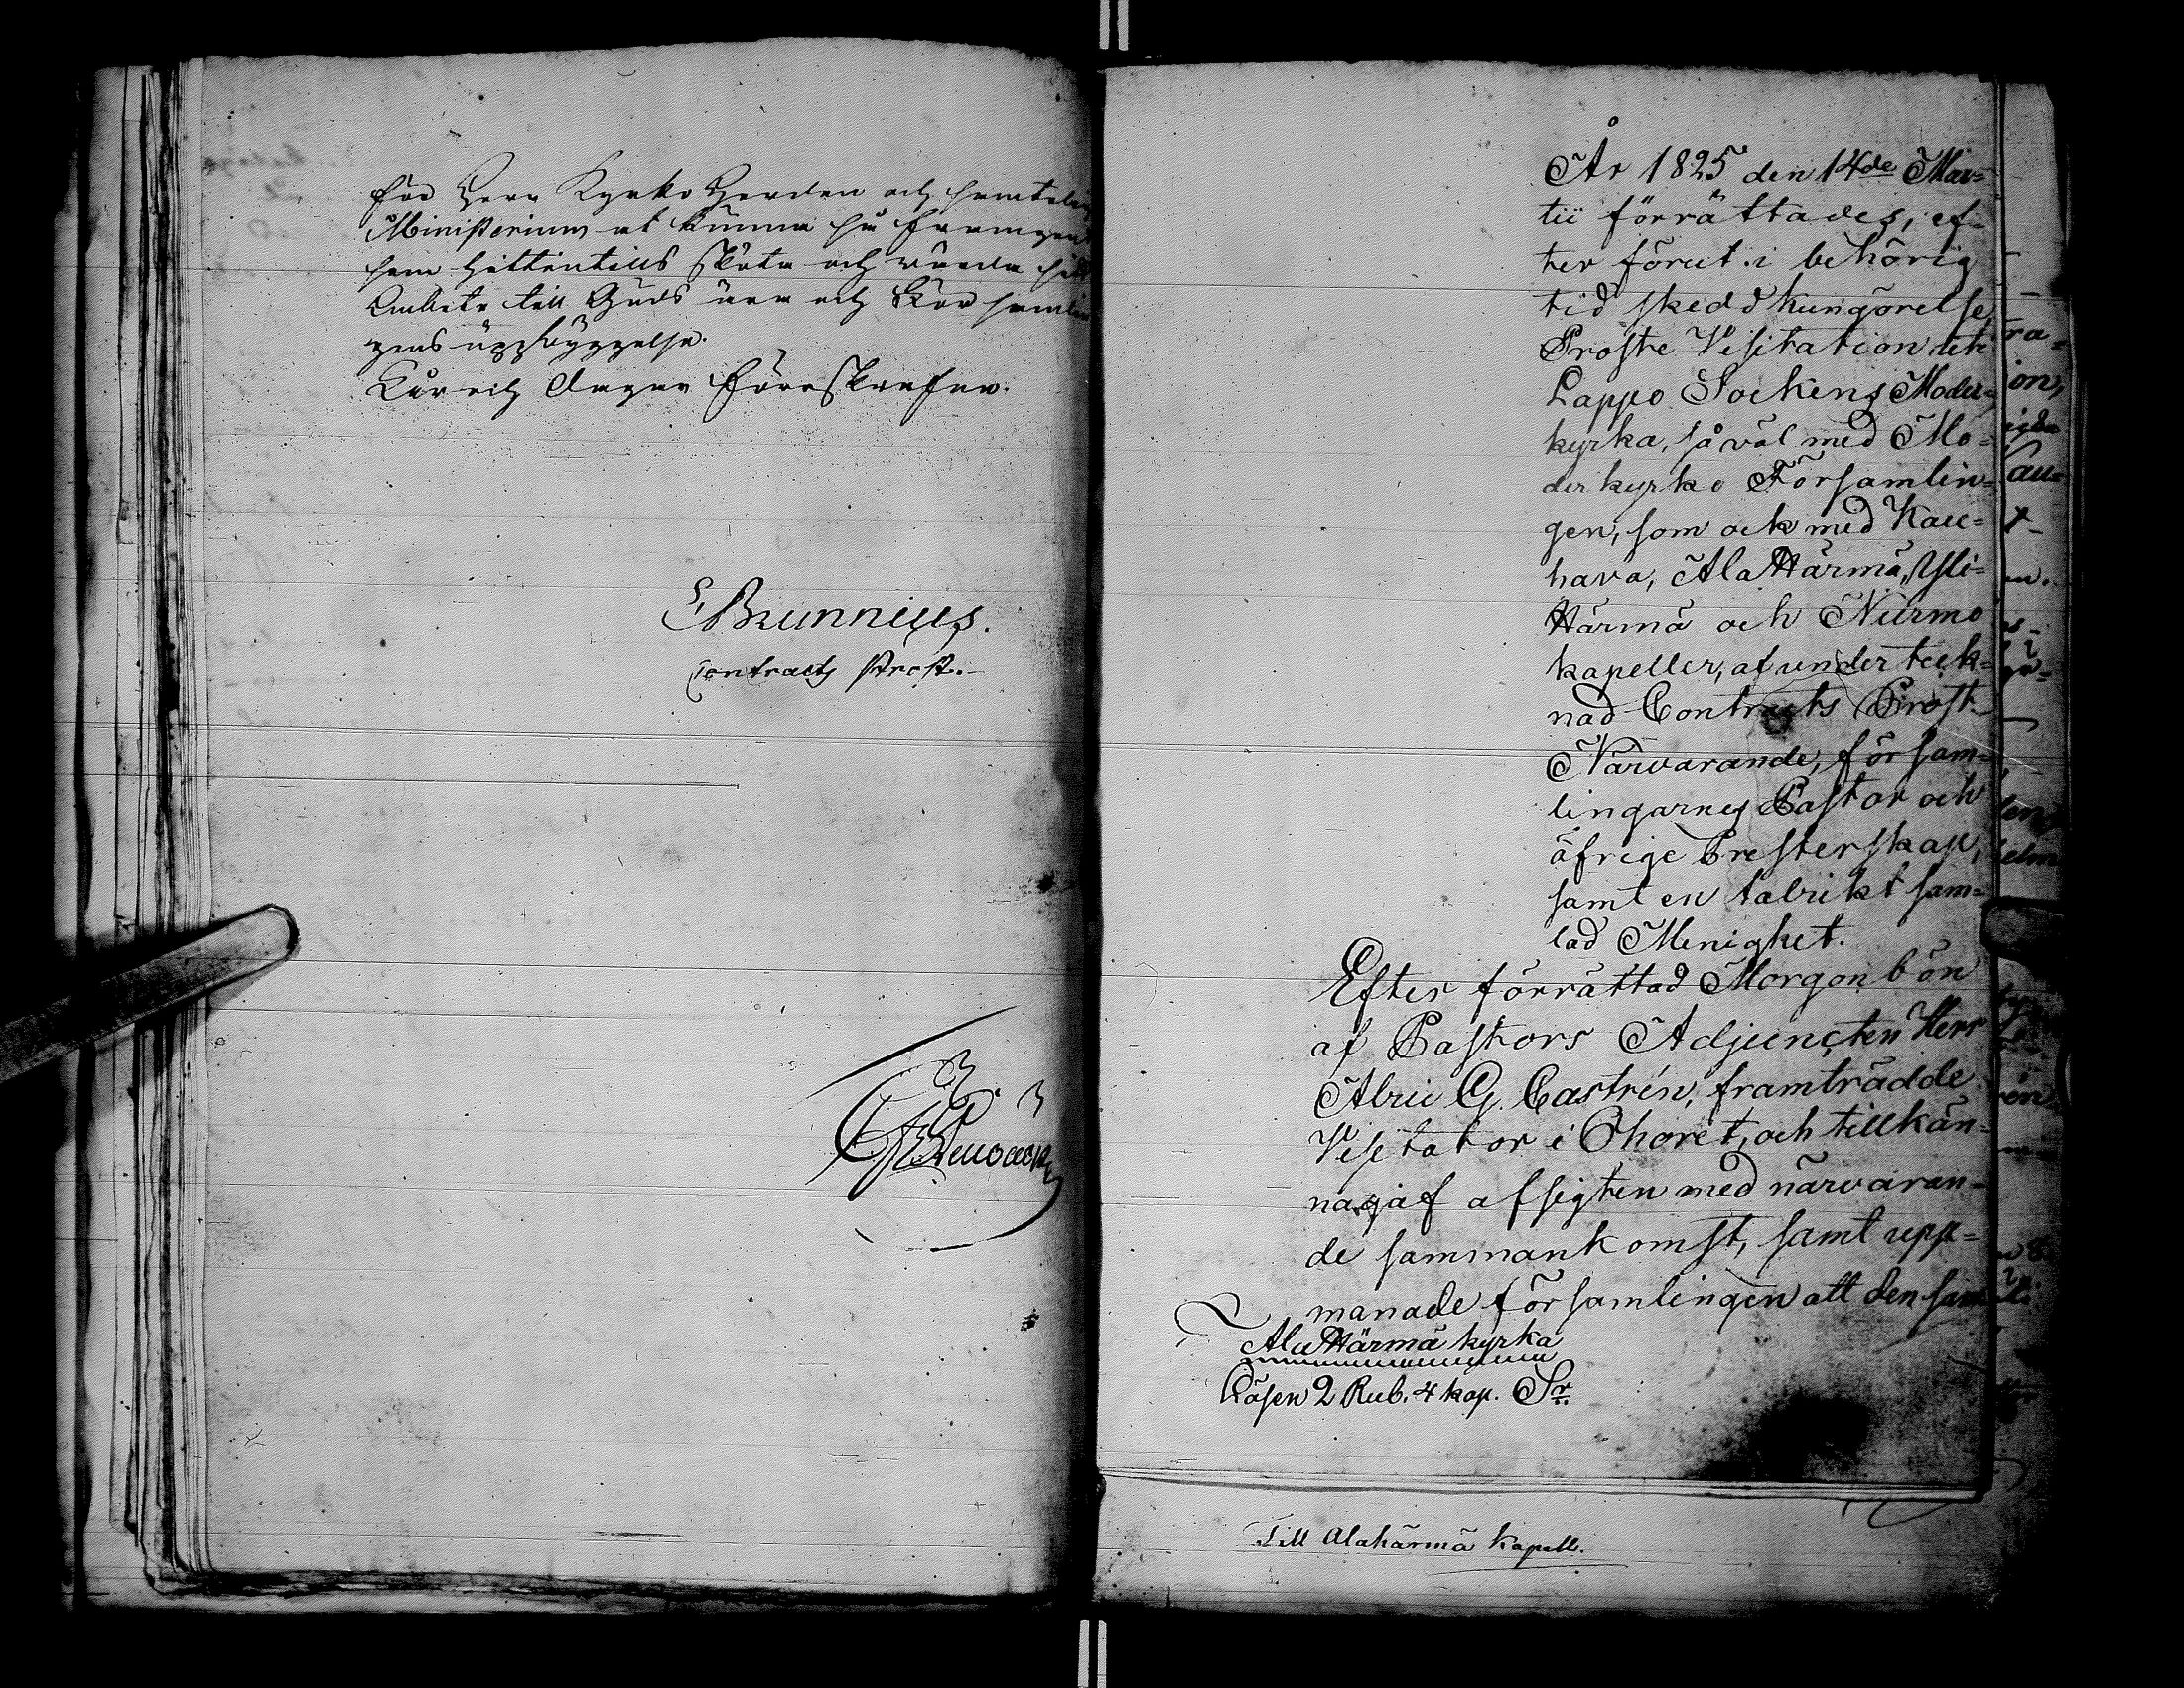 för Herr Kyrko Herden och samtelig
Ministerium at kunna så framgent
som hittentills sköta och vårda sitt
Embete till Guds ära och Församlin
gens uppbyggelse.
År och Dagar förreskrefne.
E Brunnius.
Contracts Prost.
År 1825 den 14de Mar=
tii förrättades, ef=
ter förut i behörig
tid skedd kungörelse,
Proste Visitation uti
Lappo Sockens Moder=
kyrka, så väl med Mo=
derkyrko Församlin=
gen, som ock med Kau=
hava, AlaHärmä, Yli=
Härmä och Nurmo
kapeller, af underteck=
nad Contracts Prost
Närvarande, försam=
lingarnes Pastor och
öfrige Presterskap,
samt en talrikt sam=
lad Menighet.
Efter förrättad Morgonbön
af Pastors Adjuncten Herr
Abr: G. Castrén, framträdde
Visitator i Choret, och tillkän=
nagaf afsigten med närvaran=
de sammankomst, samt upp=
manade församlingen att den sam
AlaHärmä kyrka
Lösen 2 Rub. 4 kop. Sr
Till Alahärmä Kapell.